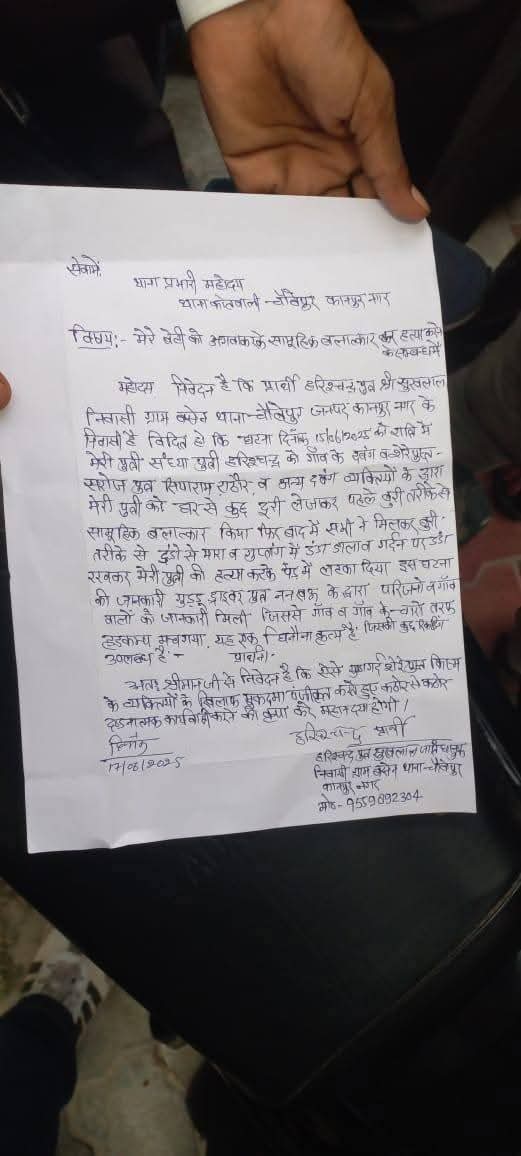 सेवामें
थाना प्रभारी महोदय
थाना कोतवाली - चौबेपुर कानपुर नगर
विषय:- मेरे बेटी को अगवाकरके सामूहिक बलात्कार कर हत्या करने
के सम्बन्ध में
महोदय निवेदन है कि प्रार्थी हरिश्चन्द्र पुत्र श्री सुखलाल
निवासी ग्राम बसेन थाना-चौबेपुर जनपद कानपुर नगर के
निवासी है विदित हो कि घटना दिनांक 15/06/2025 को रात्रि में
मेरी पुत्री संध्या पुत्री हरिश्चन्द्र को गाँव के दबंग
सरोज पुत्र सियाराम राठौर व अन्य दबंग व्यक्तियों के द्वारा
मेरी पुत्री को घर से कुछ दूरी लेजाकर पहले बुरी तरीके से
सामूहिक बलात्कार किया फिर बाद में सभी ने मिलकर बुरी
तरीके से डंडो से मारा व गुप्तांग में डंडा डाला व गर्दन पर डंडा
रखकर मेरी पुत्री की हत्या करके पेड़ में लटका दिया इस घटना
की जानकारी गुड्डू ड्राइवर पुत्र के द्वारा परिजनो व गाँव
वालों को जानकारी मिली जिससे गाँव व गाँव के चारो तरफ
हड़कम्प मचगया, यह एक घिनौना कृत्य है जिसकी कुछ
उपलब्ध है:-
अतः श्रीमान जी से निवेदन है कि ऐसे किस्म
के व्यक्तियों के खिलाफ मुकदमा पंजीकृत करते हुए कठोर से कठोर
दण्डात्मक कार्यवाही करने की कृपा करे महान दया होगी।
दिनाँक
17/06/2025
हरिश्चन्द्र प्रार्थी
हरिश्चन्द्र पुत्र सुखलाल जाति धानुक
निवासी ग्राम बसेन थाना-चौबेपुर
कानपुर नगर
मो०- 9559892304